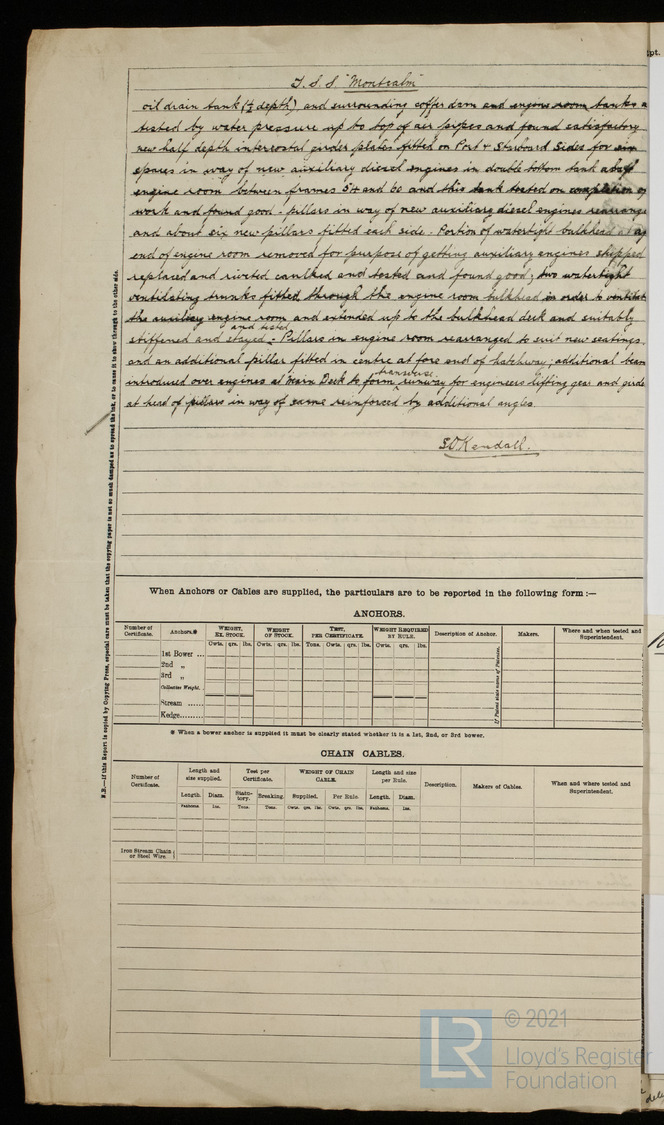 T. S. S. "Montcalm"
oil drain tank (½ depth) and surrounding coffer dam and engine room tanks
tested by water pressure up to top of air pipes and found satisfactory
new half depth intercostal girder plates fitted on Port & Starboard Sides for six
spaces in way of new auxiliary diesel engines in double bottom tank
engine room between frames 54 and 60 and this tank tested on completion of
work and found good. Pillars in way of new auxiliary diesel engines rearrange
and about six new pillars fitted each side. Portion of watertight bulkhead at
end of engine room removed for purpose of getting auxiliary engines shipped
replaced and riveted caulked and tested and found good; two watertight
ventilating trunks fitted through the engine room bulkhead in order to ventilate
the auxiliary engine room and extended up to the bulkhead deck and suitably
stiffened and stayed and tested. Pillars in engine room rearranged to suit new seatings,
and an additional pillar fitted in centre at fore end of hatchway; additional beam
introduced over engines at Main Deck to form transverse runway for engineers lifting gear and girde
at head of pillars in way of same reinforced by additional angles.
S O Kendall.
N.B.—If this Report is copied by Copying Press, especial care must be taken that the copying paper is not so much damped as to spread the ink, or to cause it to show through to the other side.
When Anchors or Cables are supplied, the particulars are to be reported in the following form :—
ANCHORS.
Number of Certificate. Anchors.* WEIGHT, EX. STOCK. WEIGHT OF STOCK. TEST, PER CERTIFICATE. WEIGHT REQUIRED BY RULE. Description of Anchor. Makers. Where and when tested and Superintendent.
Cwts. qrs. lbs. Cwts. qrs. lbs. Tons. Cwts. qrs. lbs. Cwts. qrs. lbs.
1st Bower ...
2nd „
3rd „
Collective Weight.
Stream ......
Kedge........
If Patent state name of Patentee.
* When a bower anchor is supplied it must be clearly stated whether it is a 1st, 2nd, or 3rd bower.
CHAIN CABLES.
Number of Certificate. Length and size supplied. Test per Certificate. WEIGHT OF CHAIN CABLE. Length and size per Rule. Description. Makers of Cables. When and where tested and Superintendent.
Length. Diam. Statutory. Breaking. Supplied. Per Rule. Length. Diam.
Fathoms. Ins. Tons. Tons. Cwts. qrs. lbs. Cwts. qrs. lbs. Fathoms. Ins.
Iron Stream Chain or Steel Wire
LR
© 2021
Lloyd's Register
Foundation